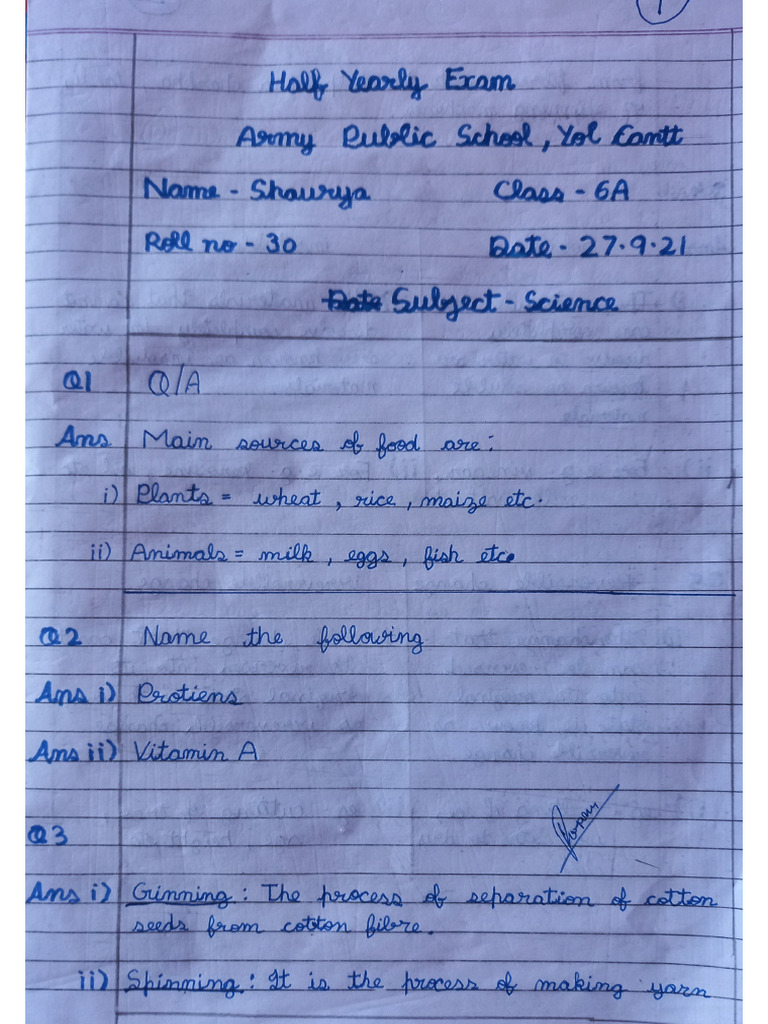 1
Half Yearly Exam
Army Public School, Yol Cantt
Name - Shaurya Class - 6A
Roll no - 30 Date - 27.9.21
Date Subject - Science
Q1 Q/A
Ans Main sources of food are:
i) Plants = wheat, rice, maize etc.
ii) Animals = milk, eggs, fish etc.
Q2 Name the following
Ans i) Protiens
Ans ii) Vitamin A
Q3
Ans i) Ginning : The process of separation of cotton
seeds from cotton fibre.
ii) Spinning : It is the process of making yarn